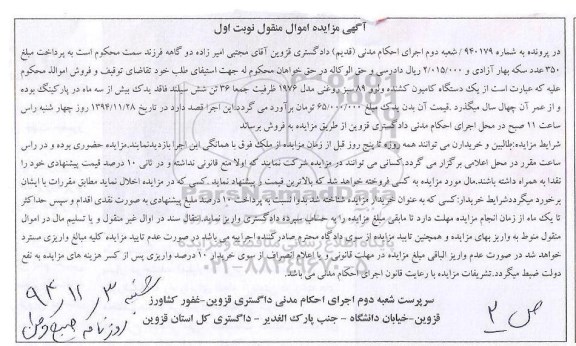 آگهی مزایده اموال منقول نوبت اول
در پرونده به شماره ۹۴۰۱۷۹/ شعبه دوم اجرای احکام مدنی (قدیم) دادگستری قزوین آقای مجتبی امیر زاده دو گاهه فرزند سمت محکوم است به پرداخت مبلغ
۳۵۰ عدد سکه بهار آزادی و ۲/۰۱۵/۰۰۰ ریال دادرسی و حق الوکاله در حق خواهان محکوم له جهت استیفای طلب خود تقاضای توقیف و فروش اموالذ محکوم
علیه که عبارت است از یک دستگاه کامیون کشنده ولوو ۸۹ سبز روغنی مدل ۱۹۷۶ ظرفیت جمعا ۳۶ تن شش سیلند فاقد یدک بیش از سه ماه در پارکینگ بوده
و از عمر آن چهال سال میگذرد .قیمت آن بدن یدک مبلغ ۶۵/۰۰۰/۰۰۰ تومان برآورد می گردد.این اجرا قصد دارد در تاریخ ۱۳۹۴/۱۱/۲۸ روز چهار شنبه راس
ساعت ۱۱ صبح در محل اجرای احکام مدنی دادگستری قزوین از طریق مزایده به فروش برساند
شرایط مزایده:طالبین و خریداران می توانند همه روزه تا پنج روز قبل از زمان مزایده از ملک فوق با همانگی این اجرا بازدیدنمایند.مزایده حضوری بوده و در راس
ساعت مقرر در محل اعلامی برگزار می گردد.کسانی می توانند در مزایده شرکت نمایند که اولا منع قانونی نداشته و در ثانی ۱۰ درصد قیمت پیشنهادی خود را
نقدا به همراه داشته باشند.مال مورد مزایده به کسی فروخته خواهد شد که بالاترین قیمت را پیشنهاد نماید .کسی که در مزایده اخلال نماید مطابق مقررات با ایشان
برخورد میگردد.شرایط خریدار:کسی که به عنوان خریدار مزایده شناخته شد بدوا نسبت به پرداخت ۱۰ درصد مبلغ پیشنهادی به صورت نقدی اقدام و سپس حداکثر
تا یک ماه از زمان انجام مزایده مهلت دارد تا مابقی مبلغ مزایده را به حساب سپرده دادگستری واریز نماید.انتقال سند در اوال غیر منقول و یا تسلیم مال در اموال
منقول منوط به واریز بهای مزایده و همچنین تایید مزایده از سوی دادگاه محترم صادرکننده اجرائیه می باشد در صورت عدم تایید مزایده کلیه مبالغ واریزی مسترد
خواهد شد در صورت عدم واریز الباقی مبلغ مزایده در مهلت قانونی و یا اعلام انصراف از سوی خریدار ۱۰ درصد واریزی پس از کسر هزینه های مزایده به نفع
دولت ضبط میگردد.تشریفات مزایده با رعایت قانون اجرای احکام مدنی می باشد.
سرپرست شعبه دوم اجرای احکام مدنی داگستری قزوین-غفور کشاورز
قزوین-خیابان دانشگاه - جنب پارک الغدیر - دادگستری کل استان قزوین
ص ۲
شنبه ۳ ۱۱ ۹۴
روزنامه
پایگاه اطلاع رسانی مناقصه و مزایده
۰۲۱-۸۸۳۴۹۶۷۰-۵